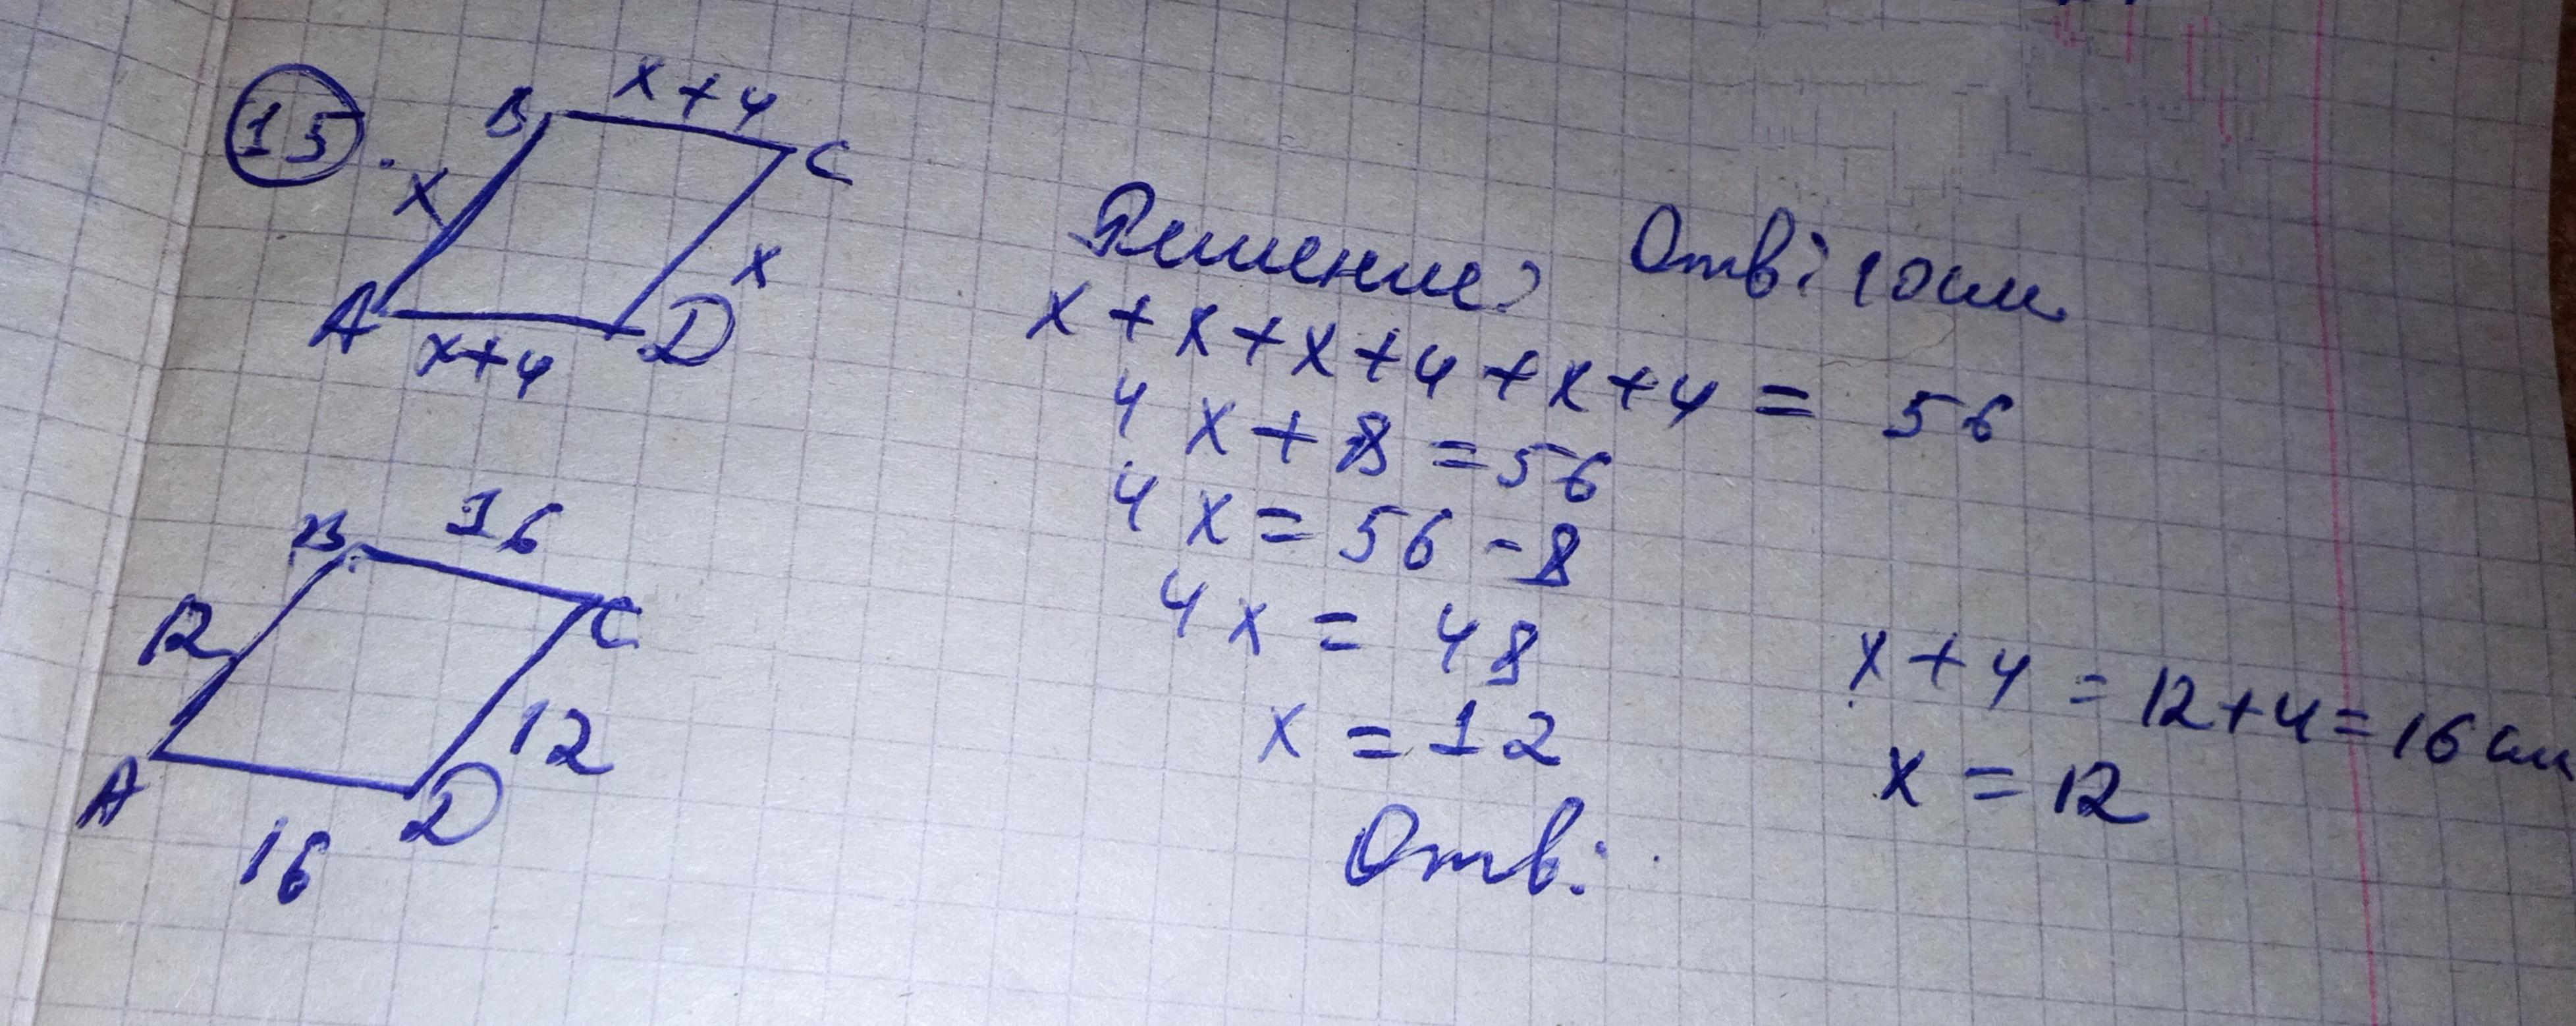 15.
B x+4 C
x
x
A x+4 D
Решение: Отв: 10см
x+x+x+4+x+4 = 56
4x+8=56
4x=56-8
4x=48
x=12
Отв:
x+4=12+4=16см
x=12
B 16 C
12
12
A 16 D